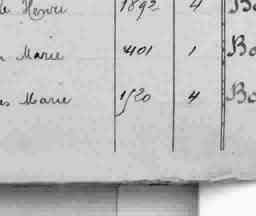 de Henri 1892 4 Bo
n Marie 401 1 Bo
es Marie 1520 4 Bo